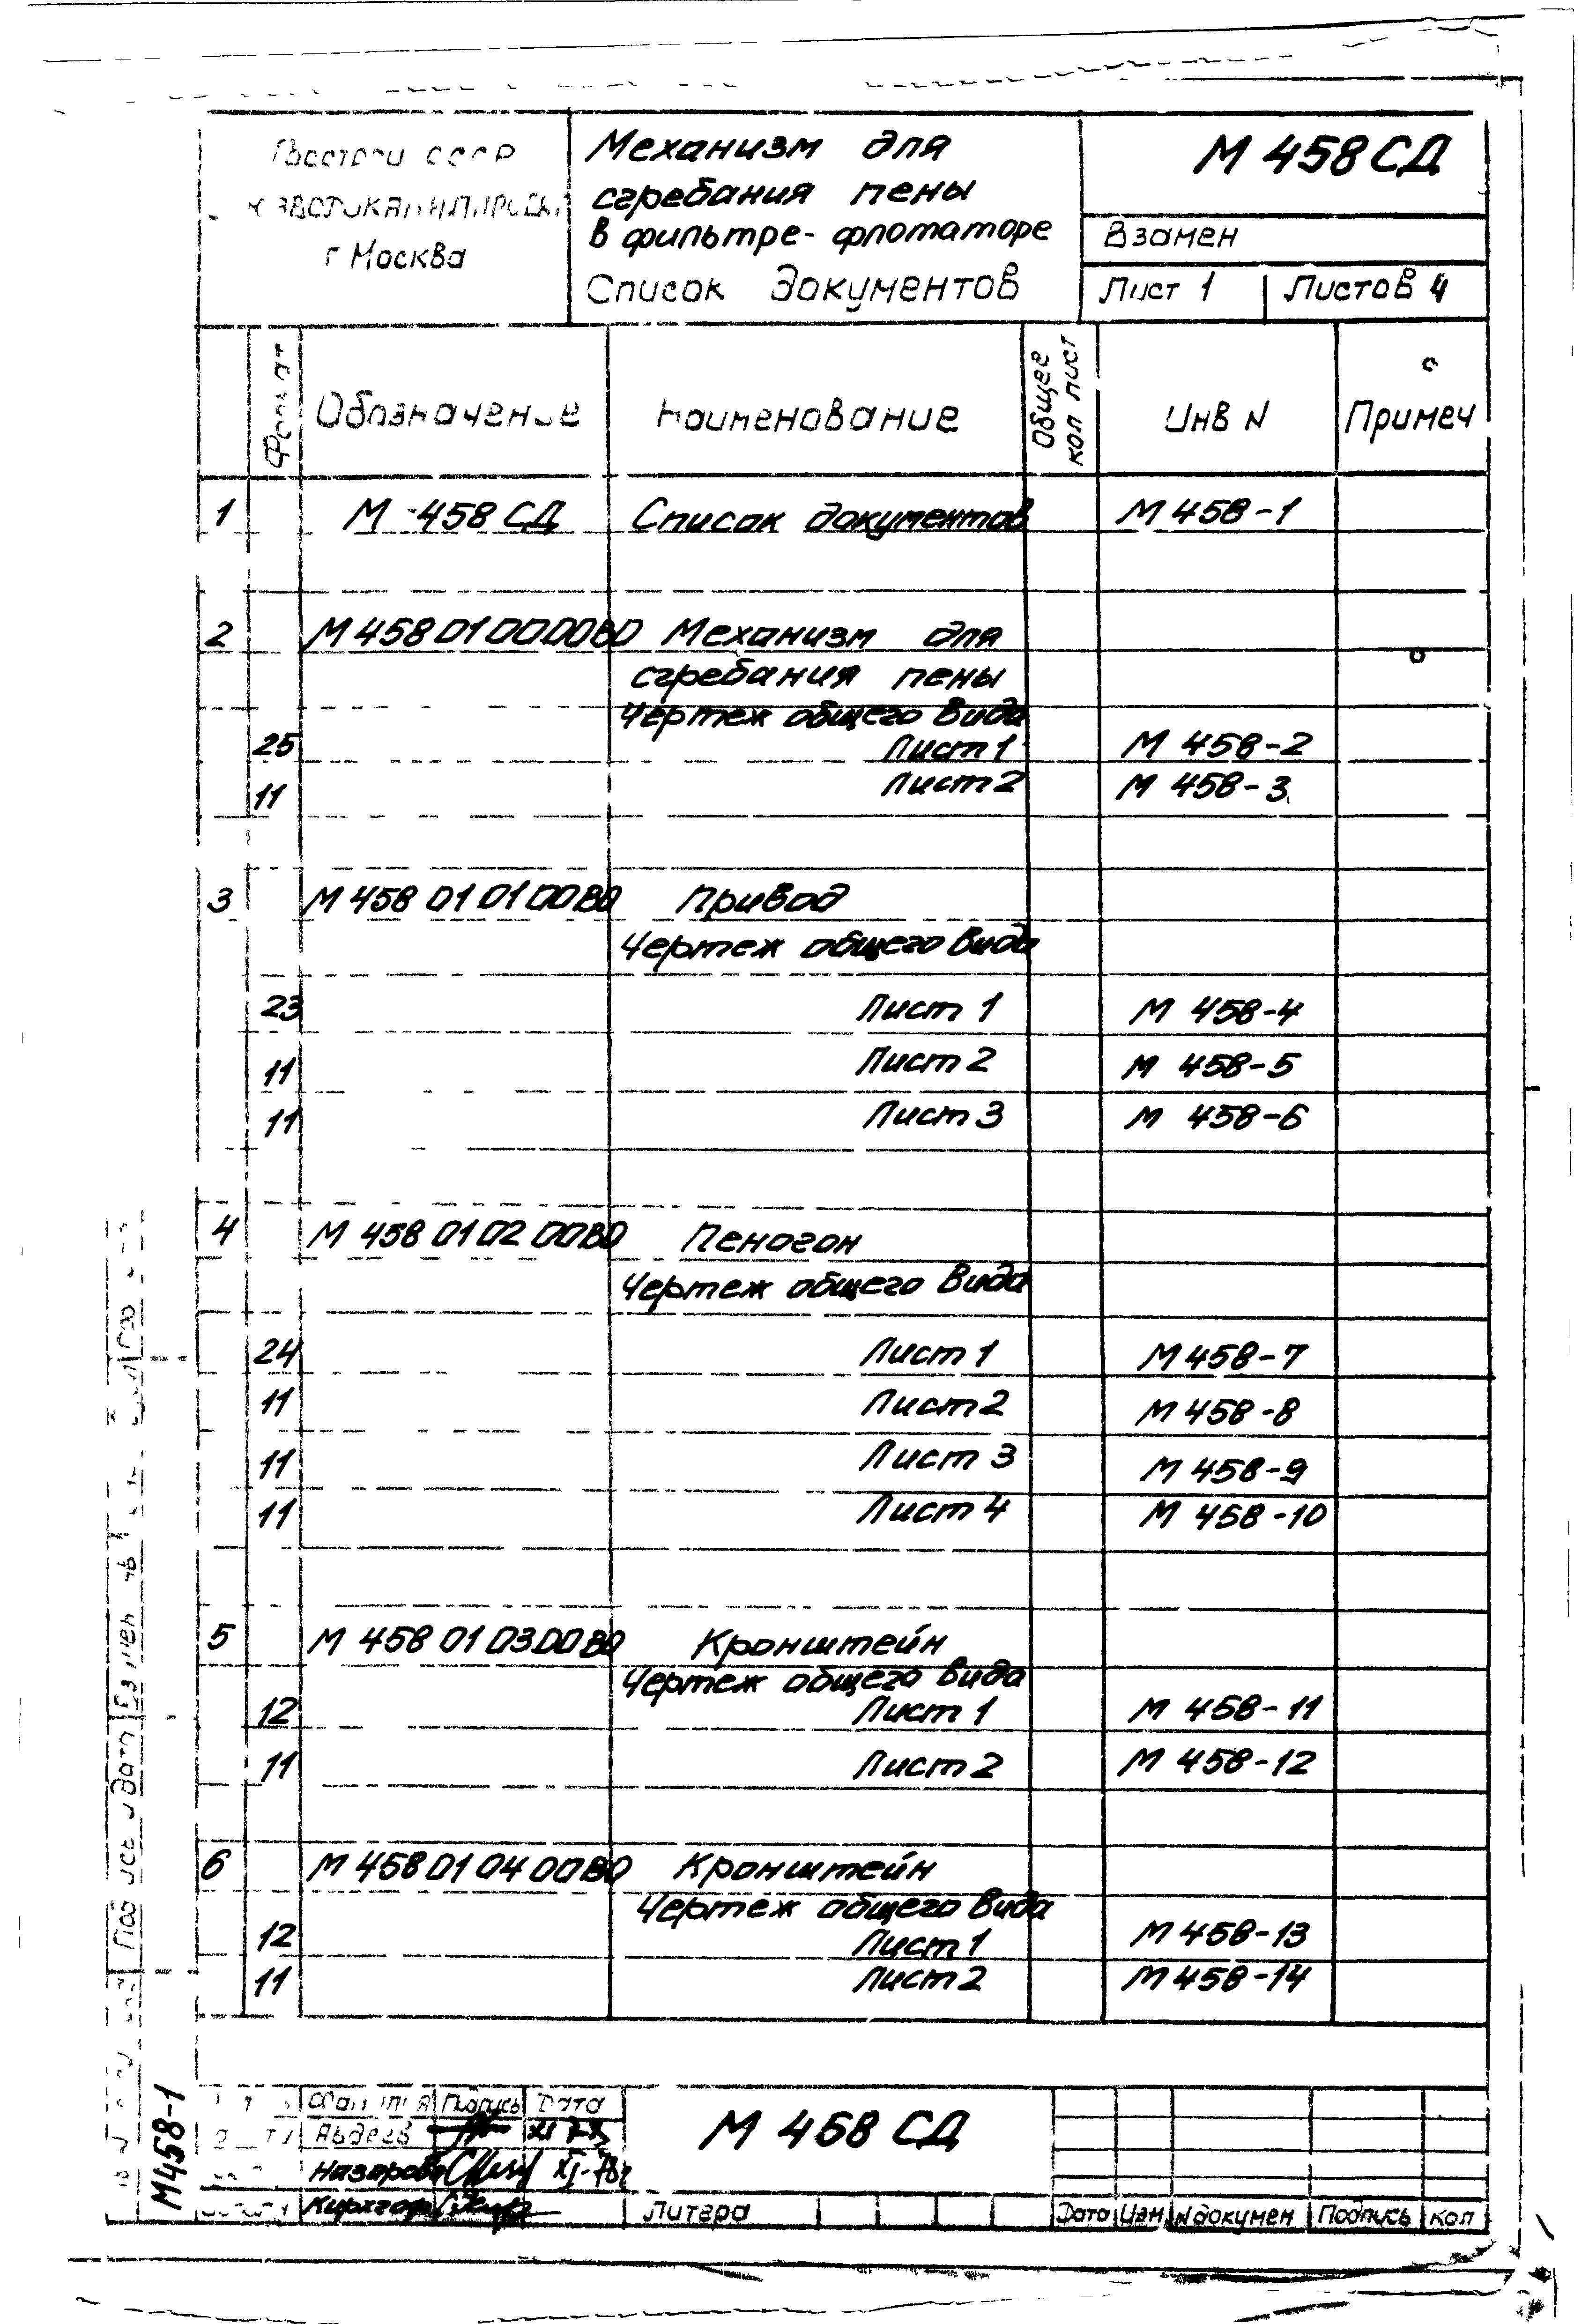 СССР
г Москва
Механизм для
сгребания пены
в фильтре-флотаторе
Список документов
М 458 СД
Взамен
Лист 1 Листов 4
Формат Обозначение Наименование Общее кол лист Инв N Примеч
1 М 458 СД Список документов М 458-1
2 М 458 01 00 00 ВО Механизм для
сгребания пены
Чертеж общего вида
25 Лист 1 М 458-2
11 Лист 2 М 458-3
3 М 458 01 01 00 ВО Привод
Чертеж общего вида
23 Лист 1 М 458-4
11 Лист 2 М 458-5
11 Лист 3 М 458-6
4 М 458 01 02 00 ВО Пеногон
Чертеж общего вида
24 Лист 1 М 458-7
11 Лист 2 М 458-8
11 Лист 3 М 458-9
11 Лист 4 М 458-10
5 М 458 01 03 00 ВО Кронштейн
Чертеж общего вида
12 Лист 1 М 458-11
11 Лист 2 М 458-12
6 М 458 01 04 00 ВО Кронштейн
Чертеж общего вида
12 Лист 1 М 458-13
11 Лист 2 М 458-14
М458-1
Подпись Дата
Авдеев
Назарова XI-78г
М 458 СД
Литера
Дата Изм N докумен Подпись Кол